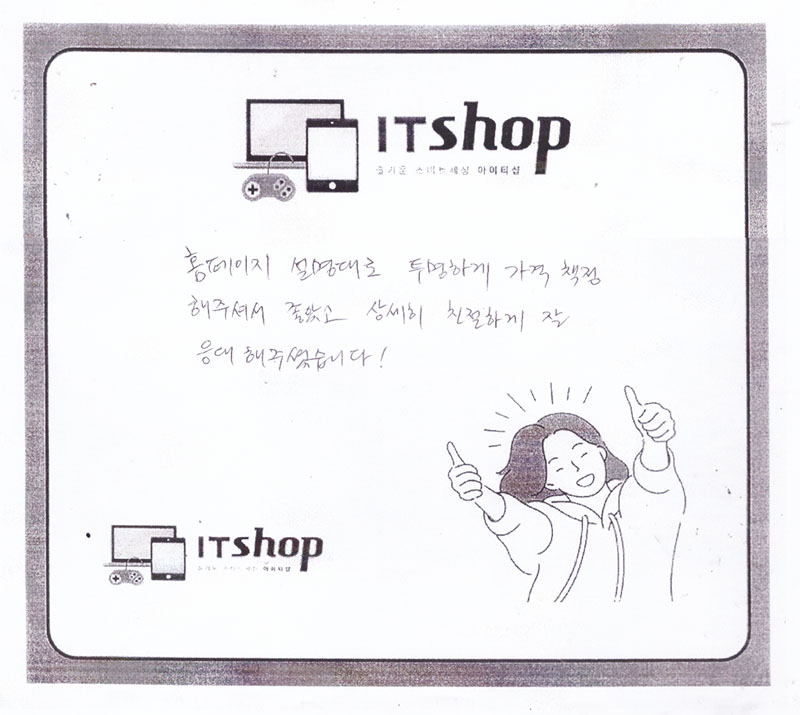 ITshop
즐거운 스마트세상 아이티샵
홈페이지 설명대로 투명하게 가격 책정
해주셔서 좋았고 상세히 친절하게 잘
응대 해주셨습니다!
ITshop
아이티샵